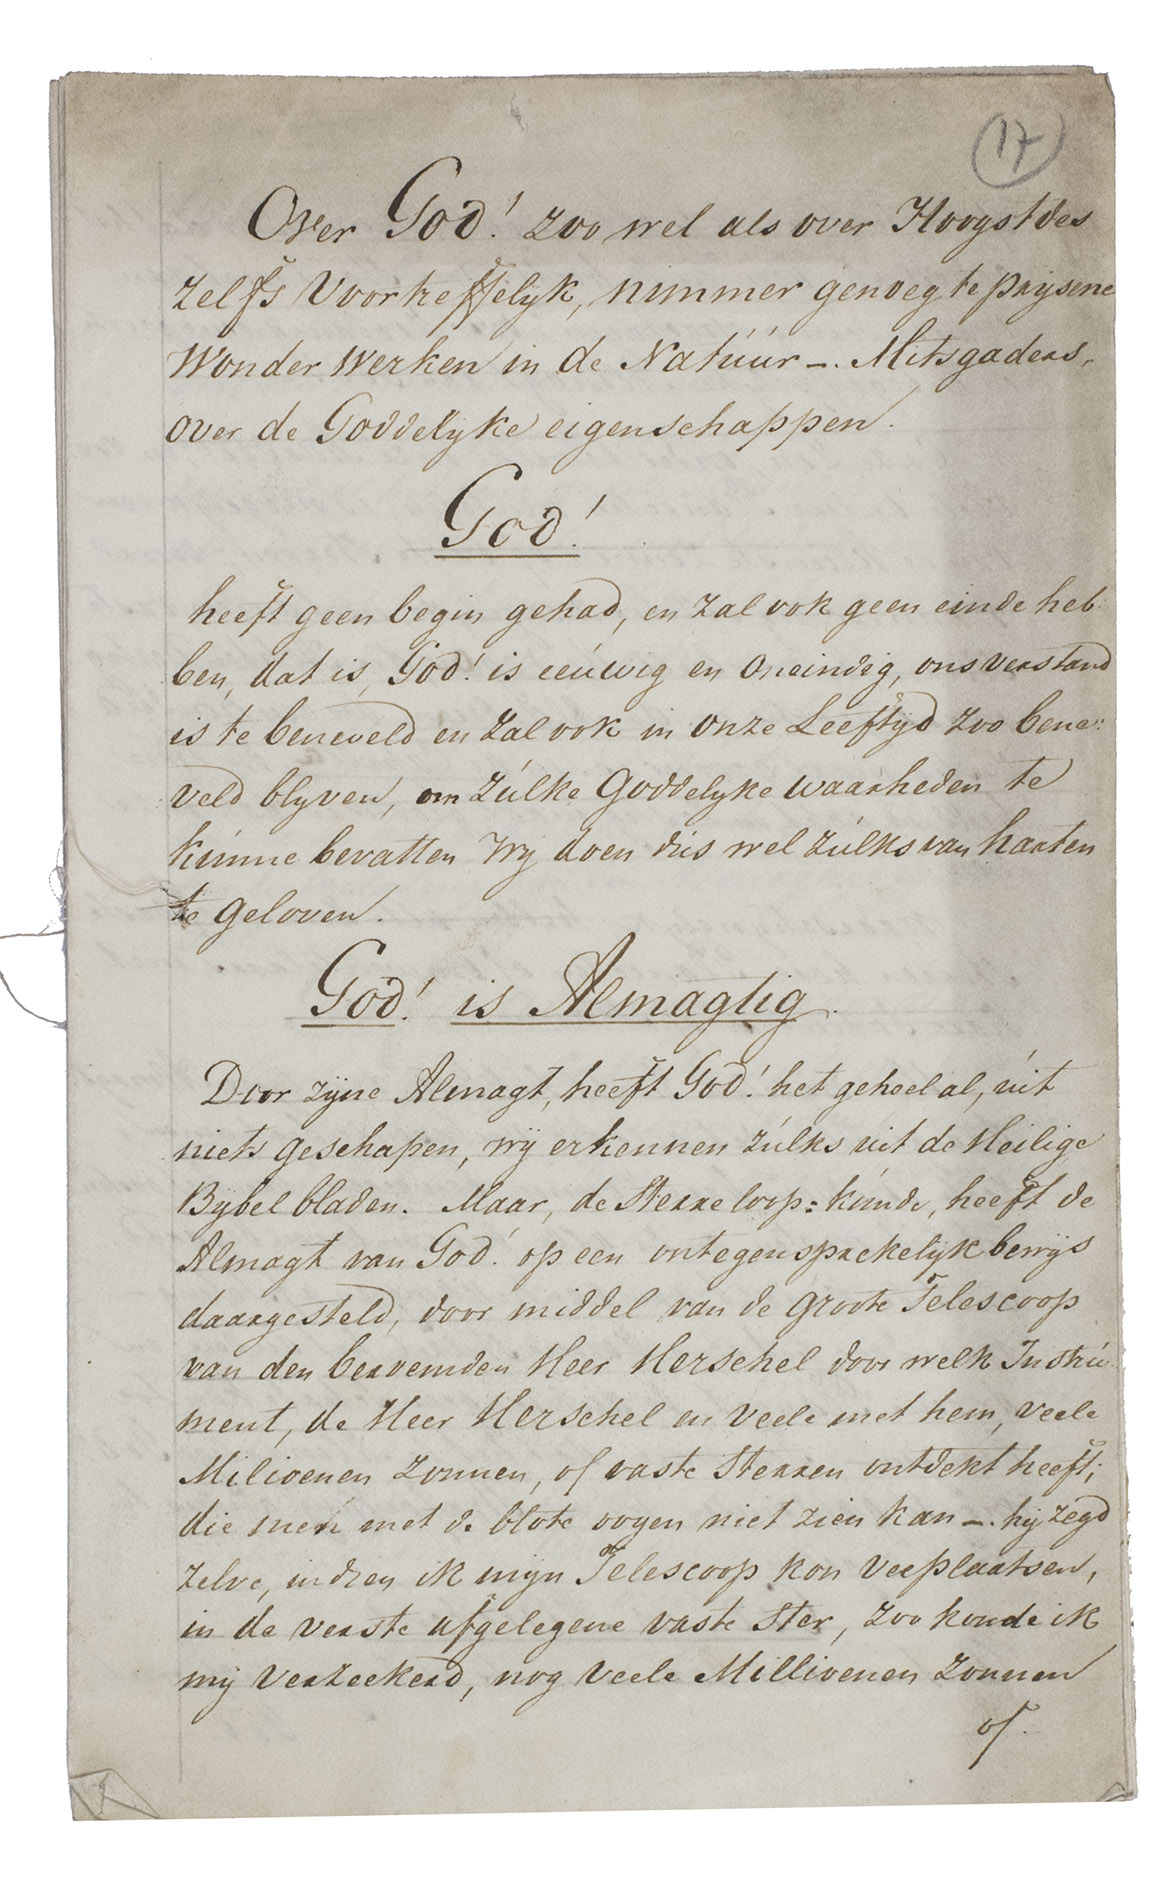 17
Over God! zoo wel als over Hoogstdes
zelfs Voortreffelijk, nimmer genoeg te prijsene
Wonder Werken in de Natúúr -. Mitsgaders,
over de Goddelijke eigenschappen.
God!
heeft geen begin gehad, en zal ook geen einde heb:
ben, dat is, God! is eeúwig en Oneindig, ons verstand
is te beneveld en zal ook in onze Leeftijd zoo bene:
veld blyven, om zúlke Goddelyke waarheden te
kúnne bevatten Wy doen dús wel zúlks van harten
te geloven.
God! is Almagtig.
Door zijne Almagt, heeft God! het geheel al, úit
niets geschapen, wij erkennen zúlks uit de Heilige
Bybel bladen. Maar, de Sterre loop: kúnde, heeft de
Almagt van God! op een ontegensprekelijk bewijs
daargesteld, door middel van de groote Telescoop
van den beroemden Heer Herschel door welk Instrú
ment, de Heer Herschel en veele met hem, veele
Milioenen zonnen, of vaste Sterren ontdekt heeft;
die men met de blote oogen niet zien kan -. hij zegd
zelve, indien ik mijn Telescoop kon verplaatsen,
in de verste afgelegene vaste Ster, zoo konde ik
mij verzeekerd, nog veele Millioenen zonnen
of.